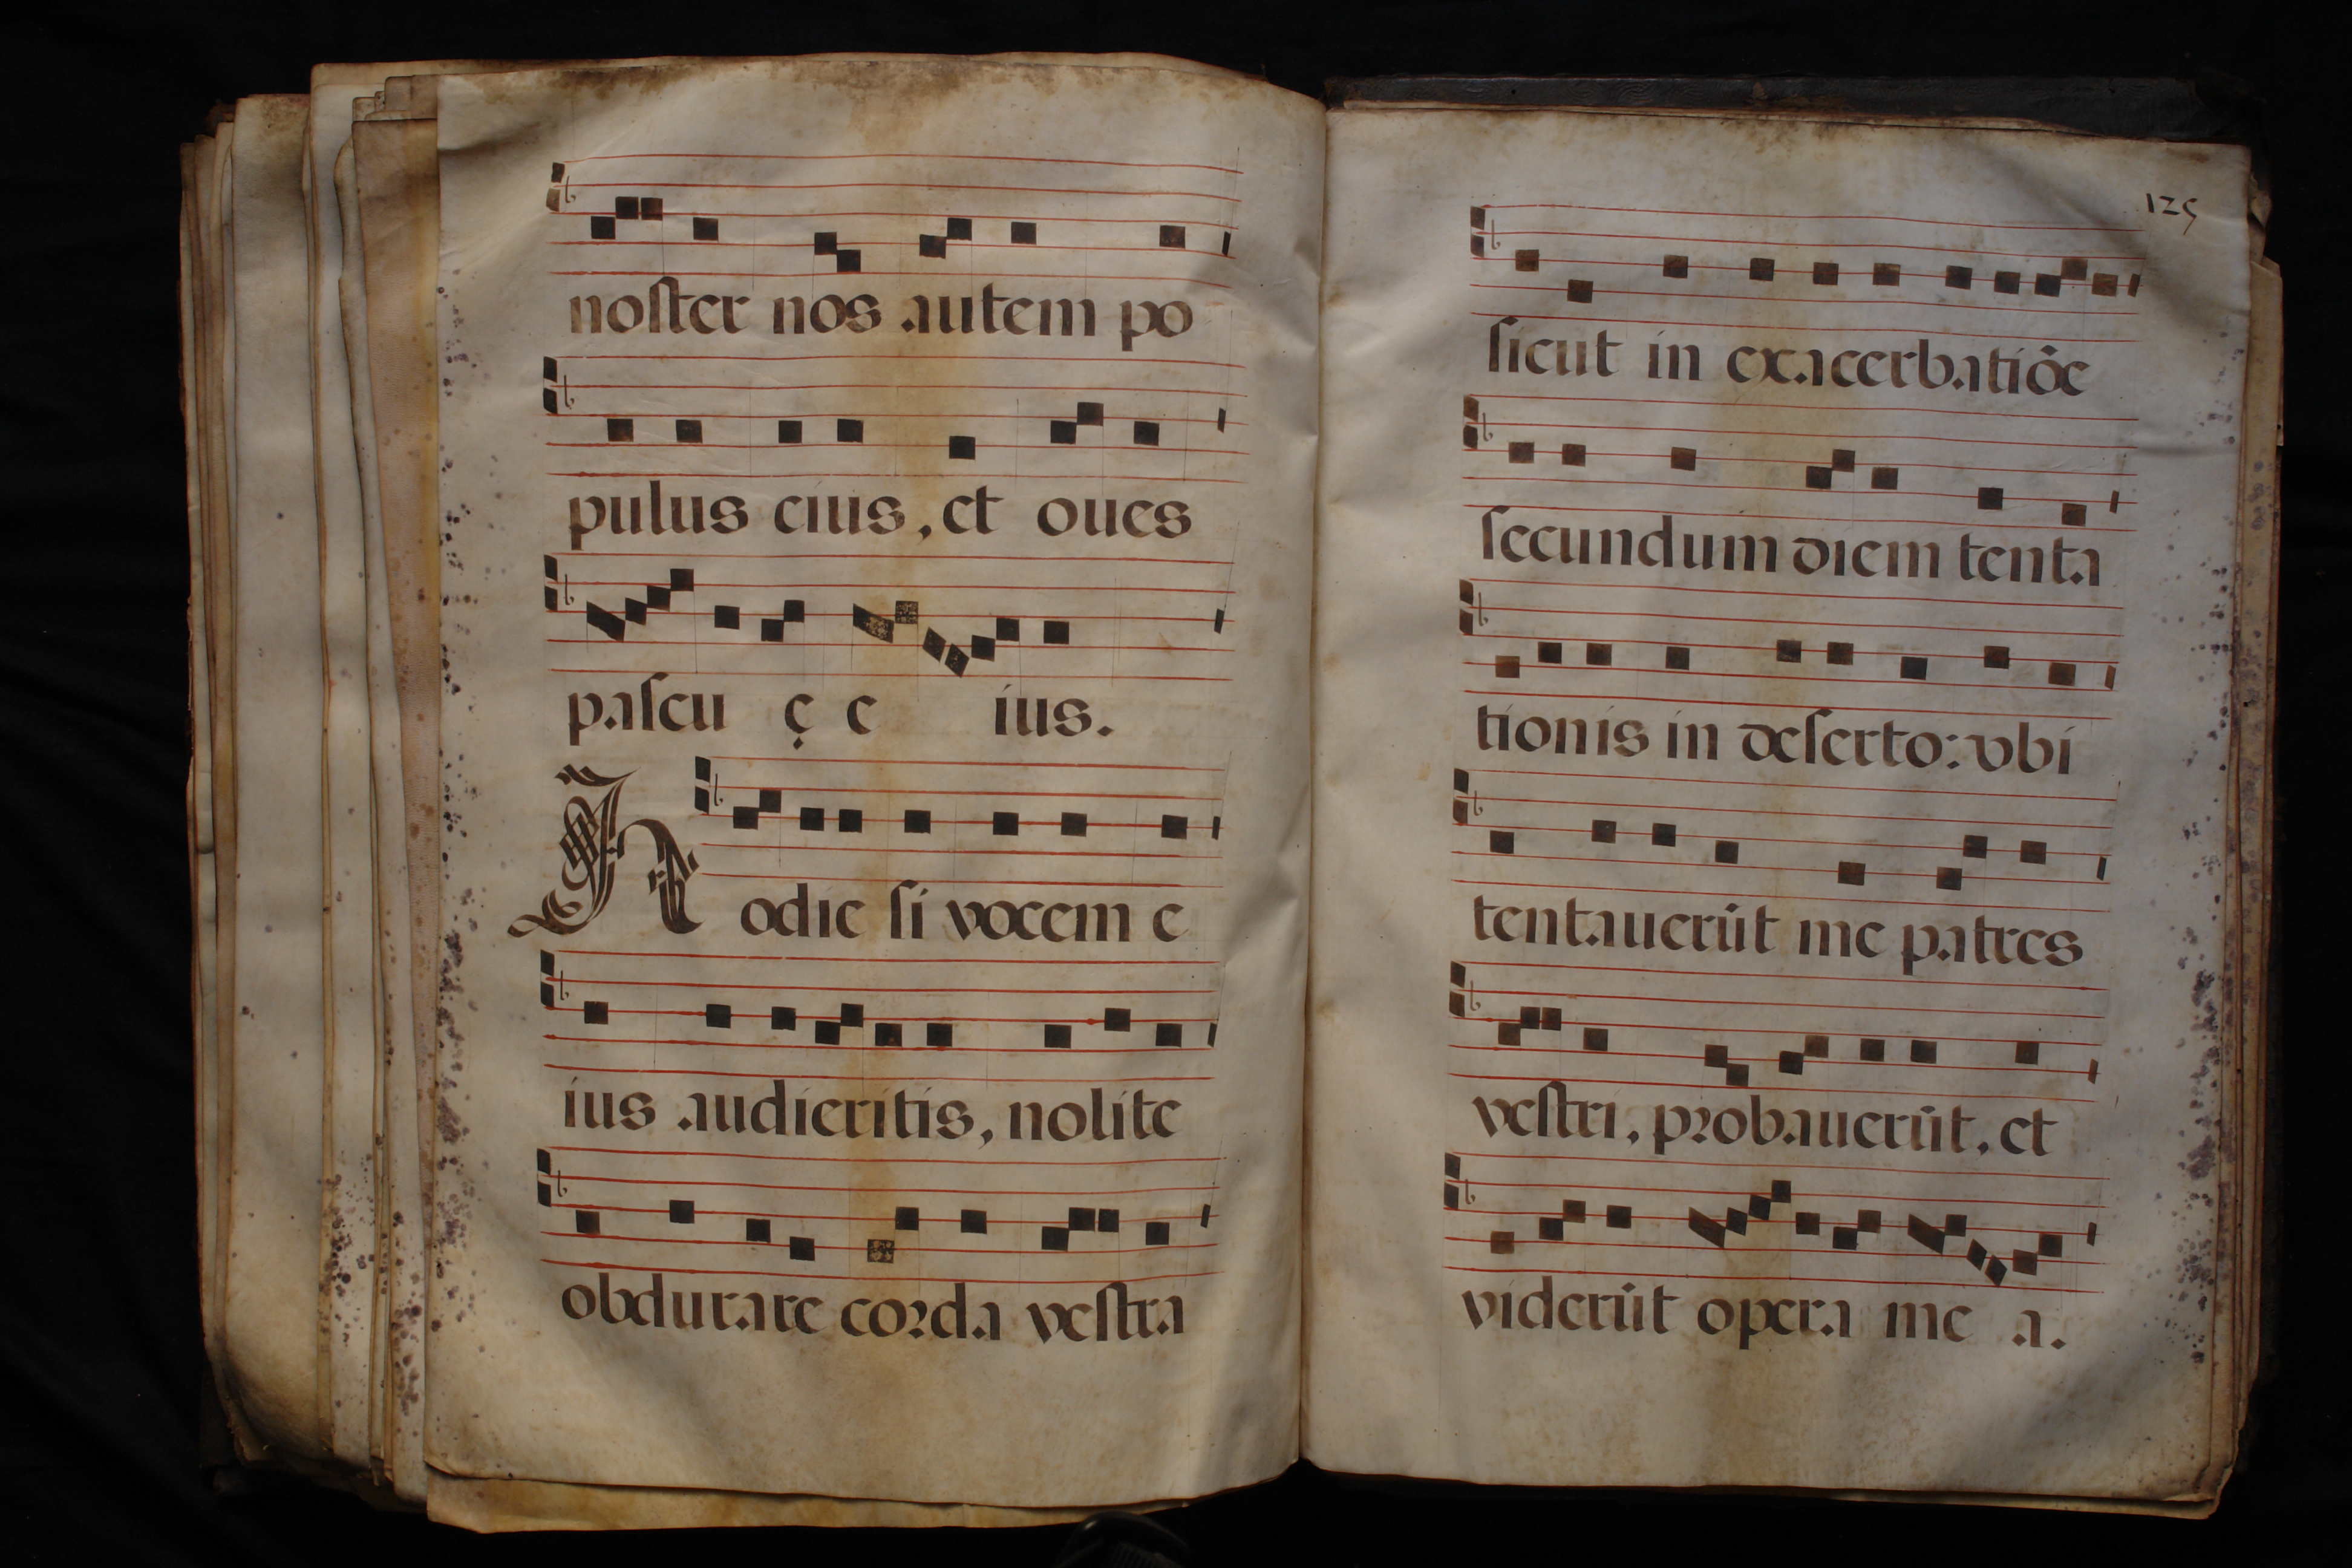 noſter nos autem po
pulus eius, et oues
paſcu ę e ius.
Hodie ſi vocem e
ius audieritis, nolite
obdurare corda veſtra
125
ſicut in exacerbatiōe
ſecundum diem tenta
tionis in deſerto: vbi
tentauerūt me patres
veſtri, probauerūt, et
viderūt opera me a.